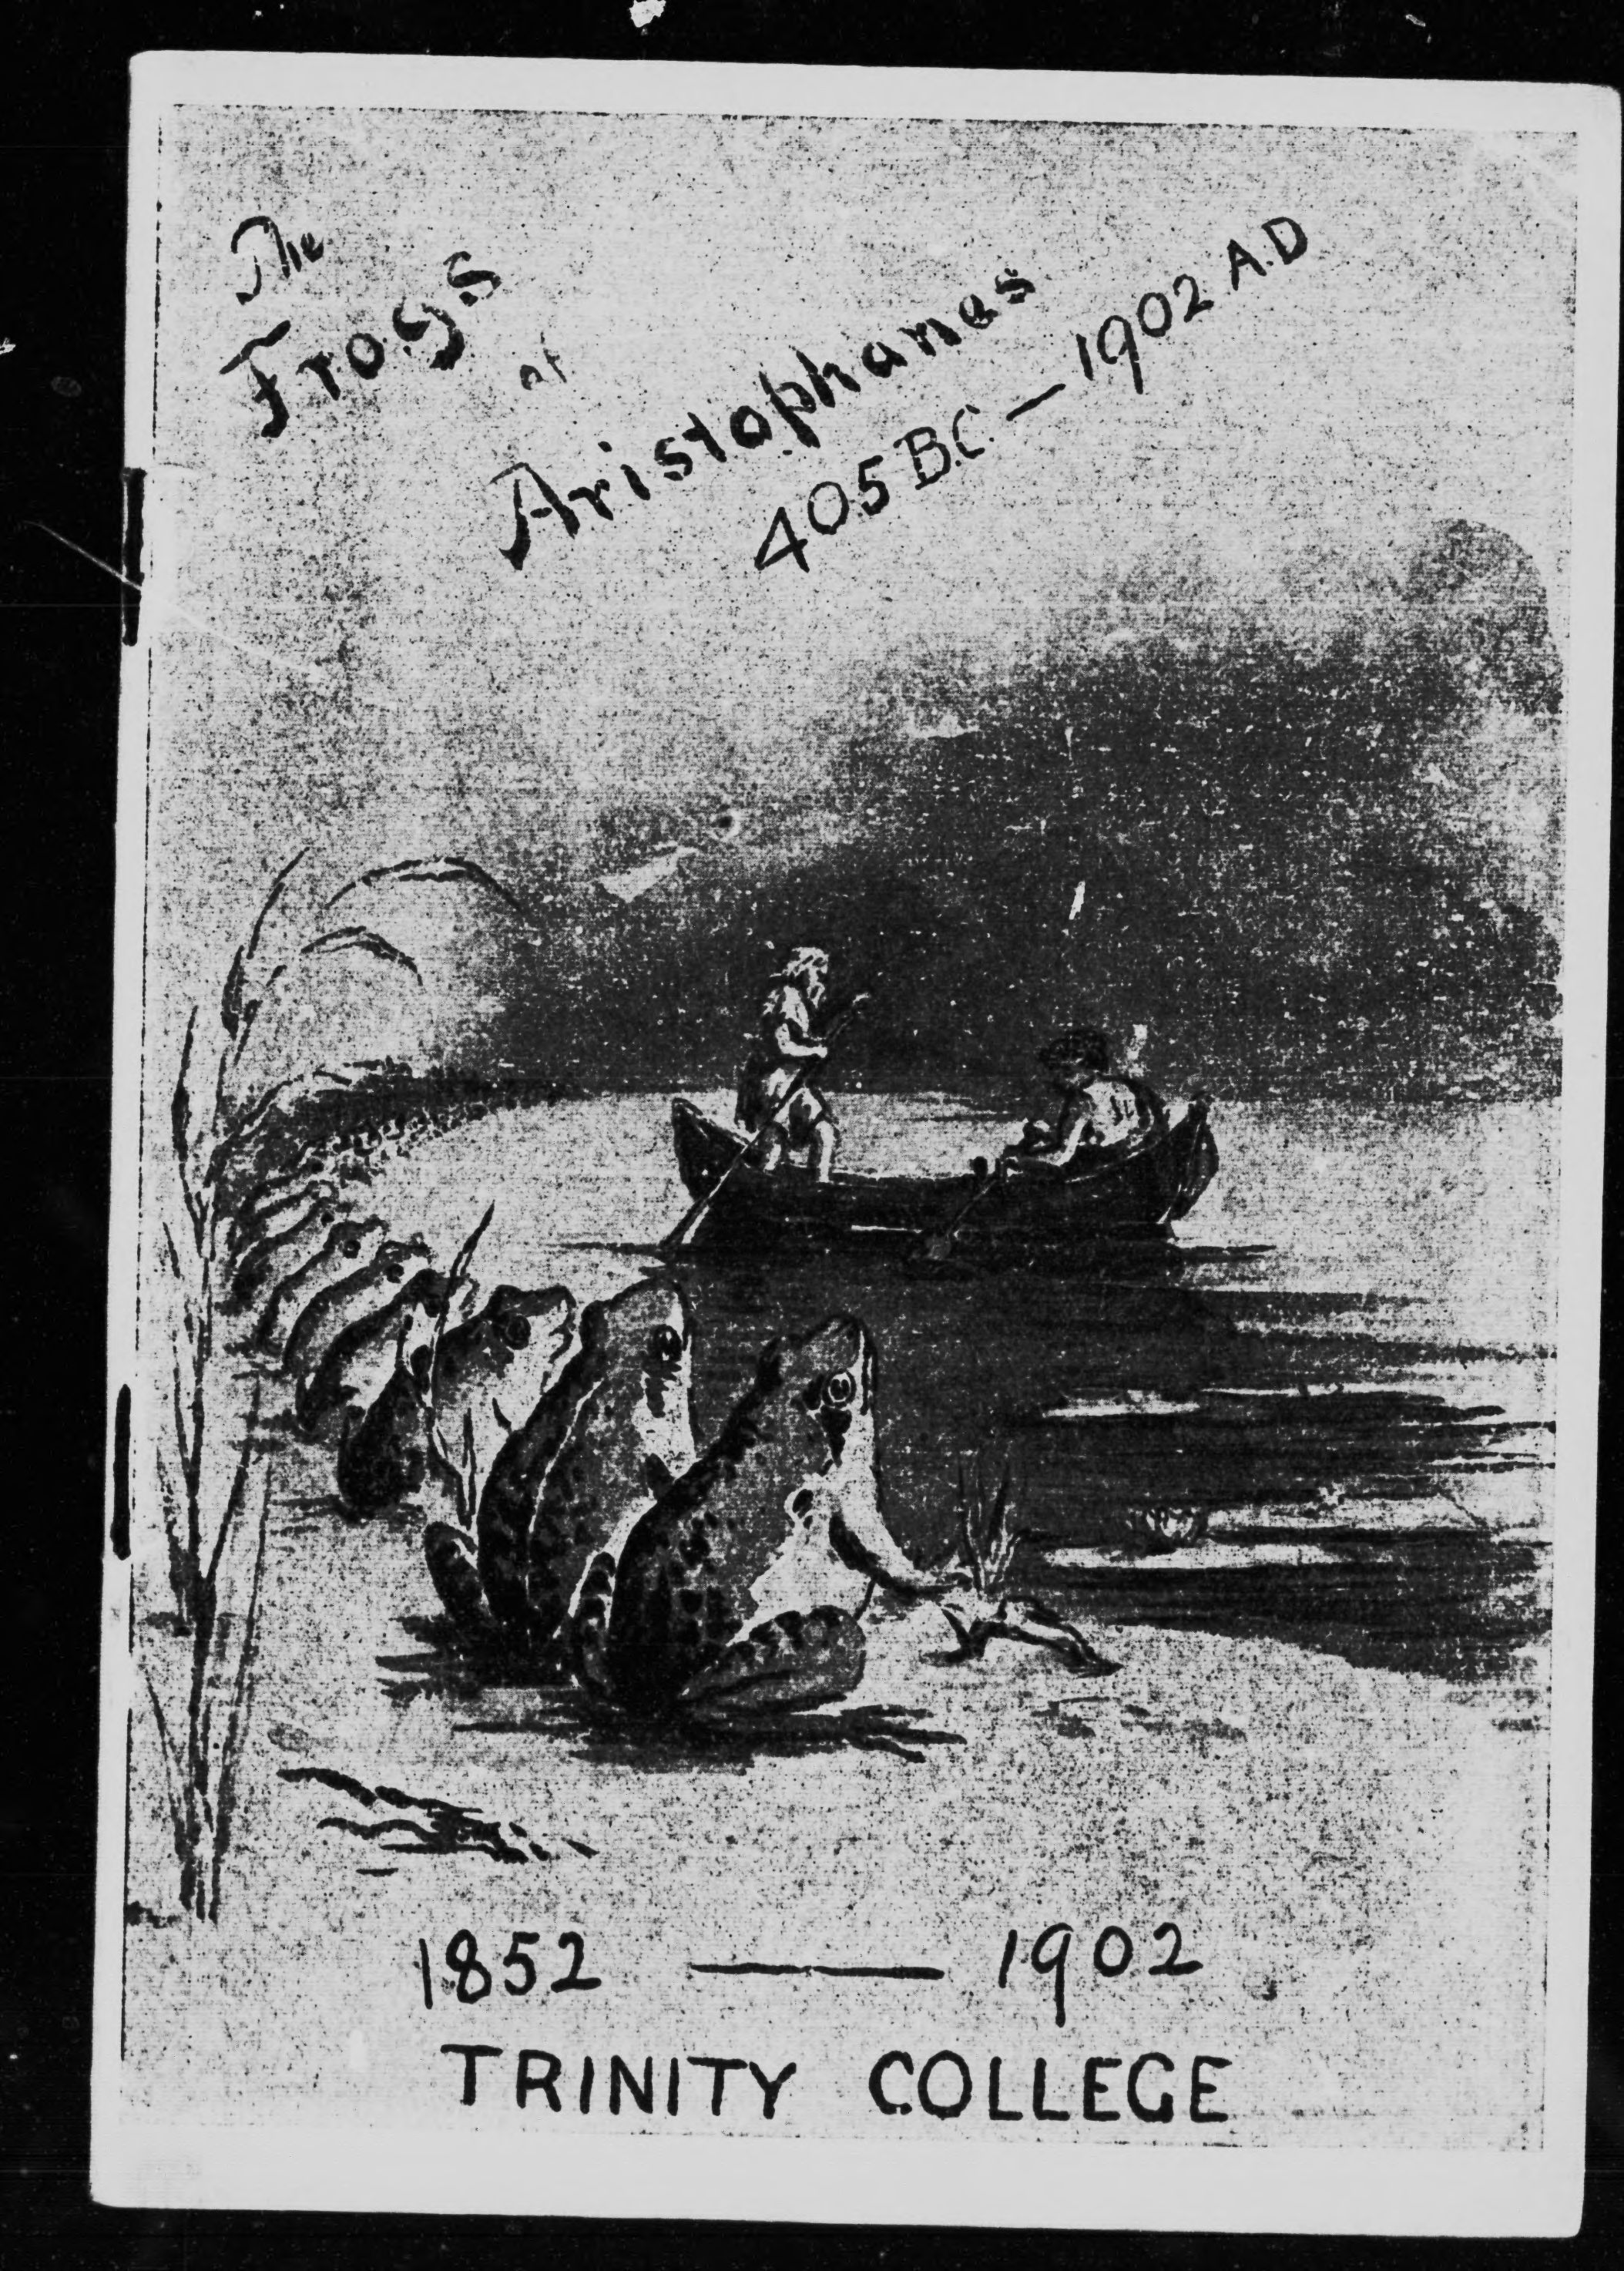 The
Frogs
of
Aristophanes
405 B.C. — 1902 A.D
1852 — 1902
TRINITY COLLEGE